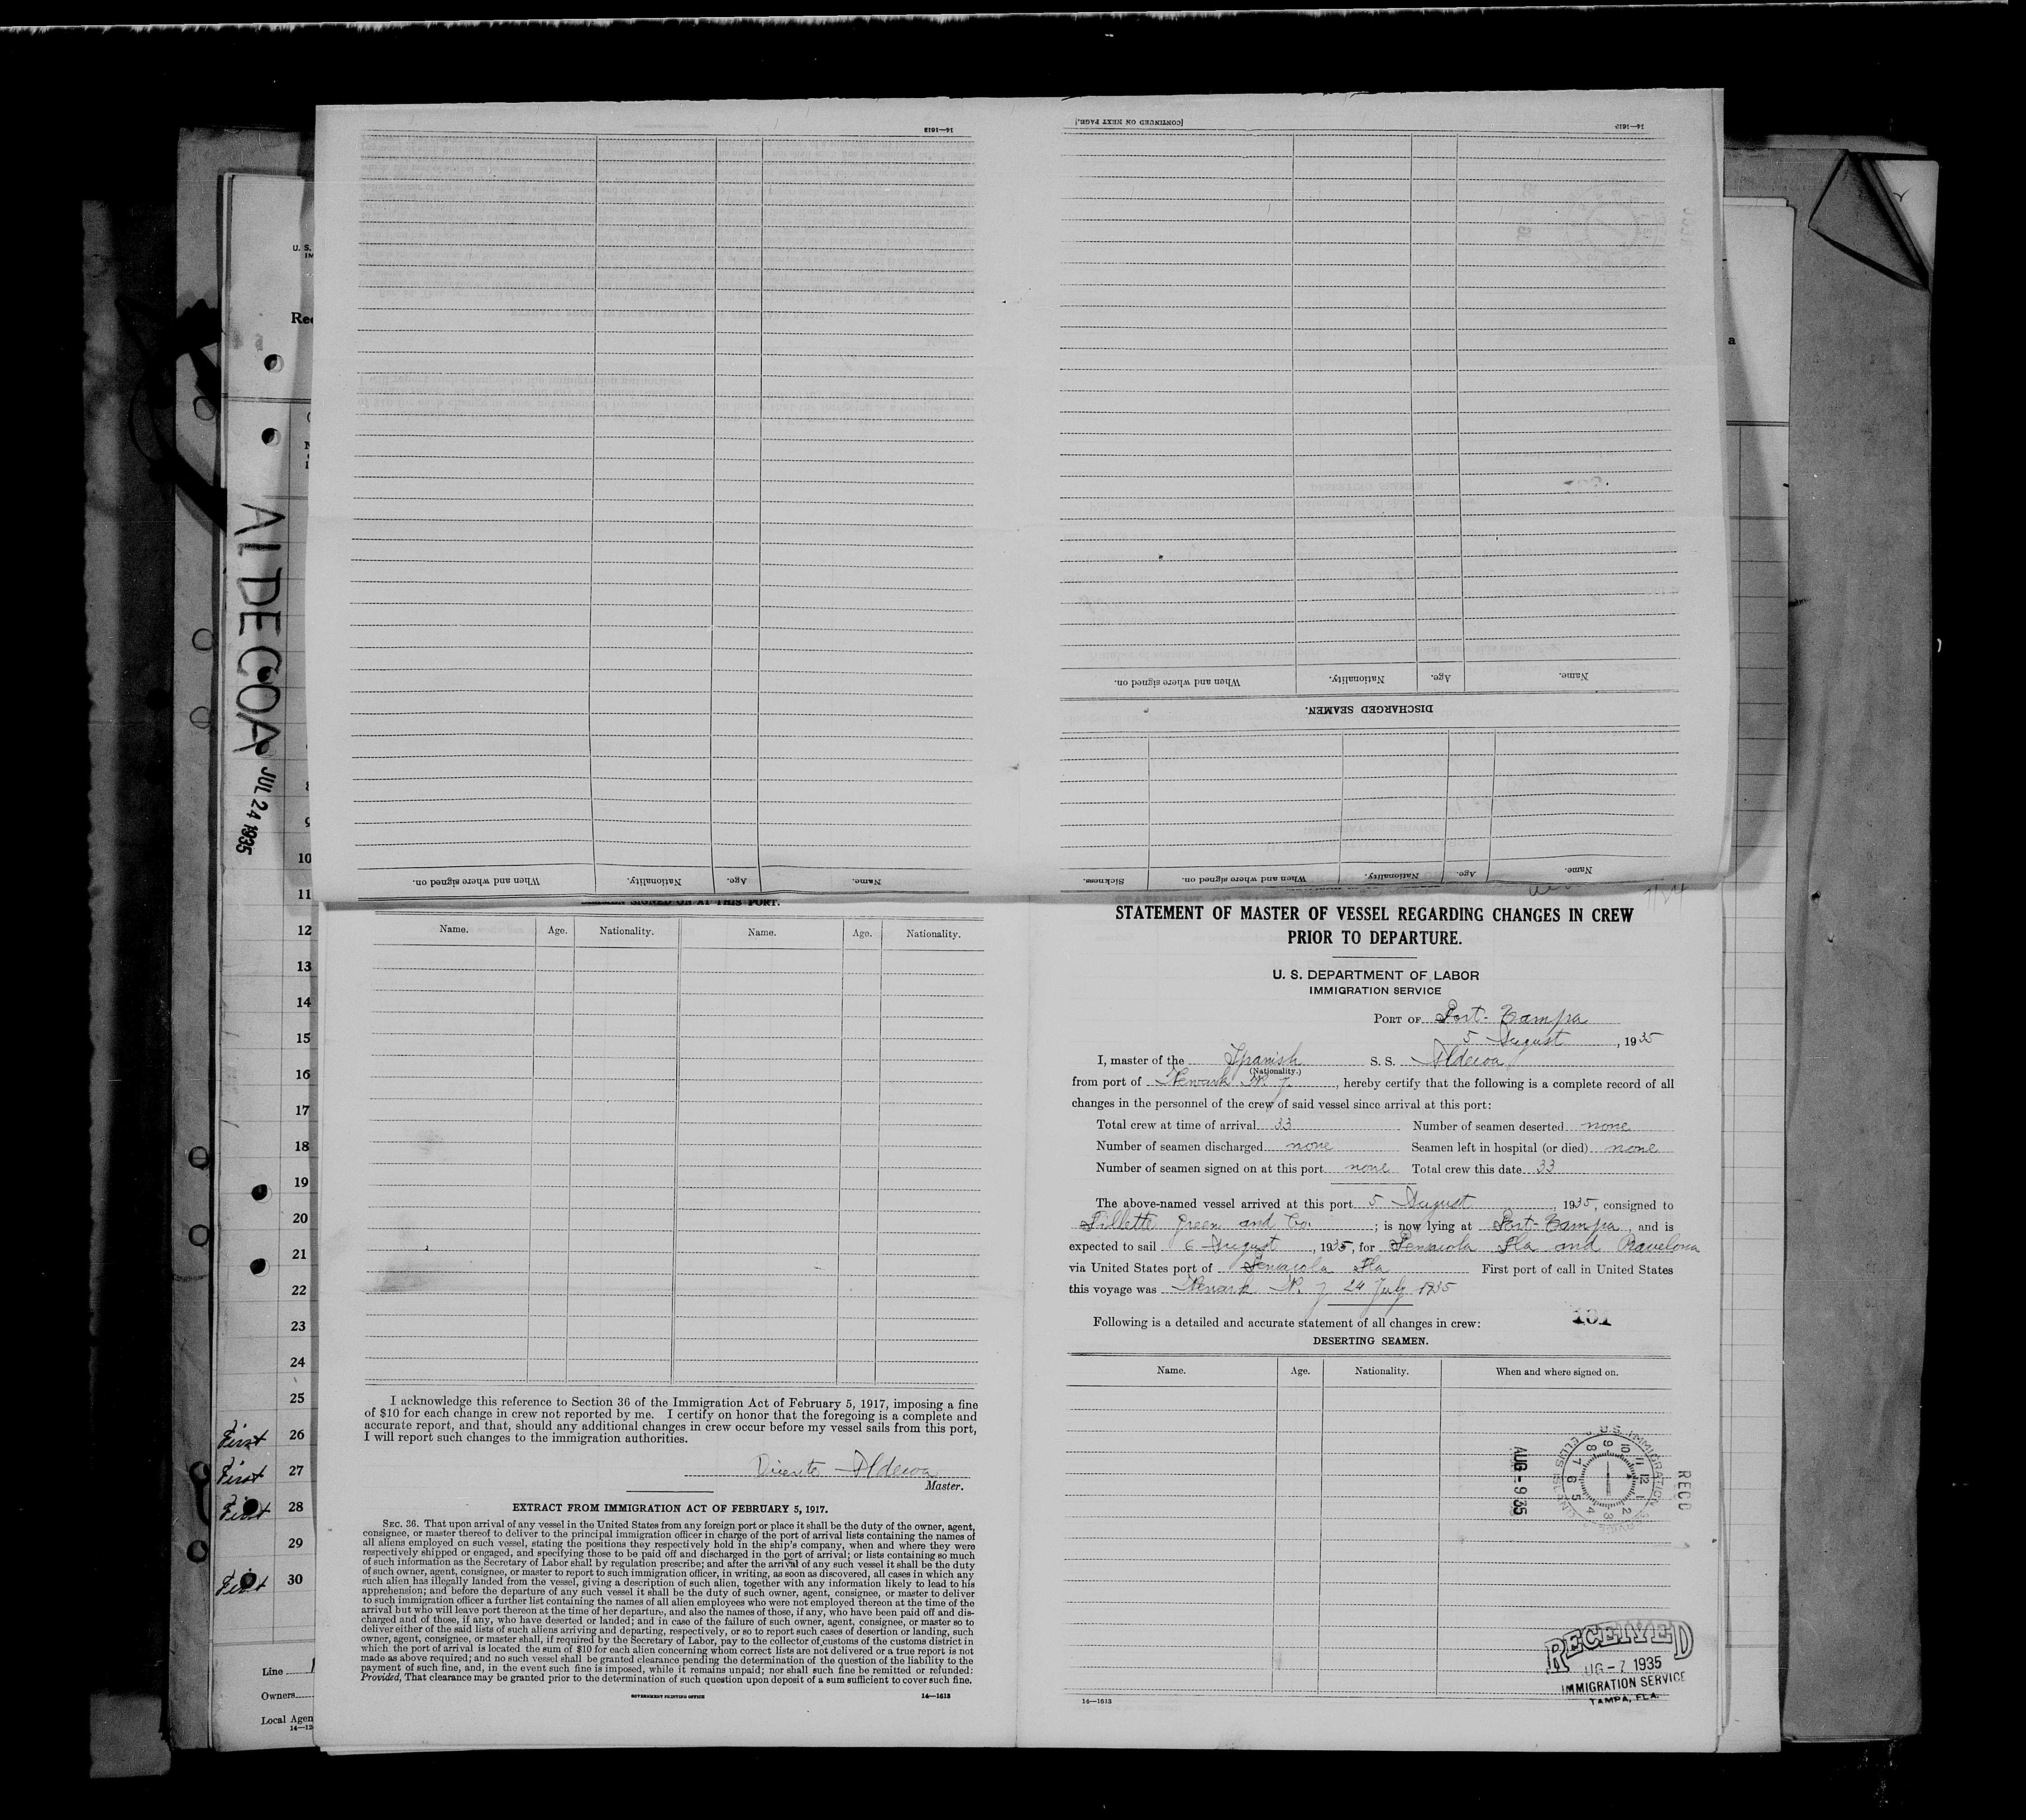 14—1613
[CONTINUED ON NEXT PAGE.]
14—1613
When and where signed on.
Nationality.
Age.
Name.
DISCHARGED SEAMEN.
When and where signed on.
Nationality.
Age.
Name.
Sickness.
When and where signed on.
Nationality.
Age.
Name.
U. S.
IM
Rec
a
ALDECOA
JUL 24 1935
10
11
12
13
14
15
16
17
18
19
20
21
22
23
24
25
First 26
First 27
First 28
29
First 30
Line
Owners
Local Agen
14—12
SEAMEN SIGNED ON AT THIS PORT.
Name. Age. Nationality. Name. Age. Nationality.
I acknowledge this reference to Section 36 of the Immigration Act of February 5, 1917, imposing a fine
of $10 for each change in crew not reported by me. I certify on honor that the foregoing is a complete and
accurate report, and that, should any additional changes in crew occur before my vessel sails from this port,
I will report such changes to the immigration authorities.
Vicente Aldecoa
Master.
EXTRACT FROM IMMIGRATION ACT OF FEBRUARY 5, 1917.
SEC. 36. That upon arrival of any vessel in the United States from any foreign port or place it shall be the duty of the owner, agent,
consignee, or master thereof to deliver to the principal immigration officer in charge of the port of arrival lists containing the names of
all aliens employed on such vessel, stating the positions they respectively hold in the ship's company, when and where they were
respectively shipped or engaged, and specifying those to be paid off and discharged in the port of arrival; or lists containing so much
of such information as the Secretary of Labor shall by regulation prescribe; and after the arrival of any such vessel it shall be the duty
of such owner, agent, consignee, or master to report to such immigration officer, in writing, as soon as discovered, all cases in which any
such alien has illegally landed from the vessel, giving a description of such alien, together with any information likely to lead to his
apprehension; and before the departure of any such vessel it shall be the duty of such owner, agent, consignee, or master to deliver
to such immigration officer a further list containing the names of all alien employees who were not employed thereon at the time of the
arrival but who will leave port thereon at the time of her departure, and also the names of those, if any, who have been paid off and dis-
charged and of those, if any, who have deserted or landed; and in case of the failure of such owner, agent, consignee, or master so to
deliver either of the said lists of such aliens arriving and departing, respectively, or so to report such cases of desertion or landing, such
owner, agent, consignee, or master shall, if required by the Secretary of Labor, pay to the collector of customs of the customs district in
which the port of arrival is located the sum of $10 for each alien concerning whom correct lists are not delivered or a true report is not
made as above required; and no such vessel shall be granted clearance pending the determination of the question of the liability to the
payment of such fine, and, in the event such fine is imposed, while it remains unpaid; nor shall such fine be remitted or refunded:
Provided, That clearance may be granted prior to the determination of such question upon deposit of a sum sufficient to cover such fine.
GOVERNMENT PRINTING OFFICE 14—1613
STATEMENT OF MASTER OF VESSEL REGARDING CHANGES IN CREW
PRIOR TO DEPARTURE.
U. S. DEPARTMENT OF LABOR
IMMIGRATION SERVICE
PORT OF Port-Tampa
5 August, 1935
I, master of the Spanish S. S. Aldecoa
(Nationality.)
from port of Newark N. J., hereby certify that the following is a complete record of all
changes in the personnel of the crew of said vessel since arrival at this port:
Total crew at time of arrival 33 Number of seamen deserted none
Number of seamen discharged none Seamen left in hospital (or died) none
Number of seamen signed on at this port none Total crew this date 33
The above-named vessel arrived at this port 5 August 1935, consigned to
Fillette Green and Co. ; is now lying at Port-Tampa, and is
expected to sail 6 August, 1935, for Pensacola Fla and Barcelona
via United States port of Pensacola Fla First port of call in United States
this voyage was Newark N. J 24 July 1935
Following is a detailed and accurate statement of all changes in crew: 101
DESERTING SEAMEN.
Name. Age. Nationality. When and where signed on.
AUG - 9 35
U.S. IMMIGRATION SERVICE ELLIS ISLAND
RECD
RECEIVED
UG - 7 1935
IMMIGRATION SERVICE
TAMPA, FLA.
14—1613